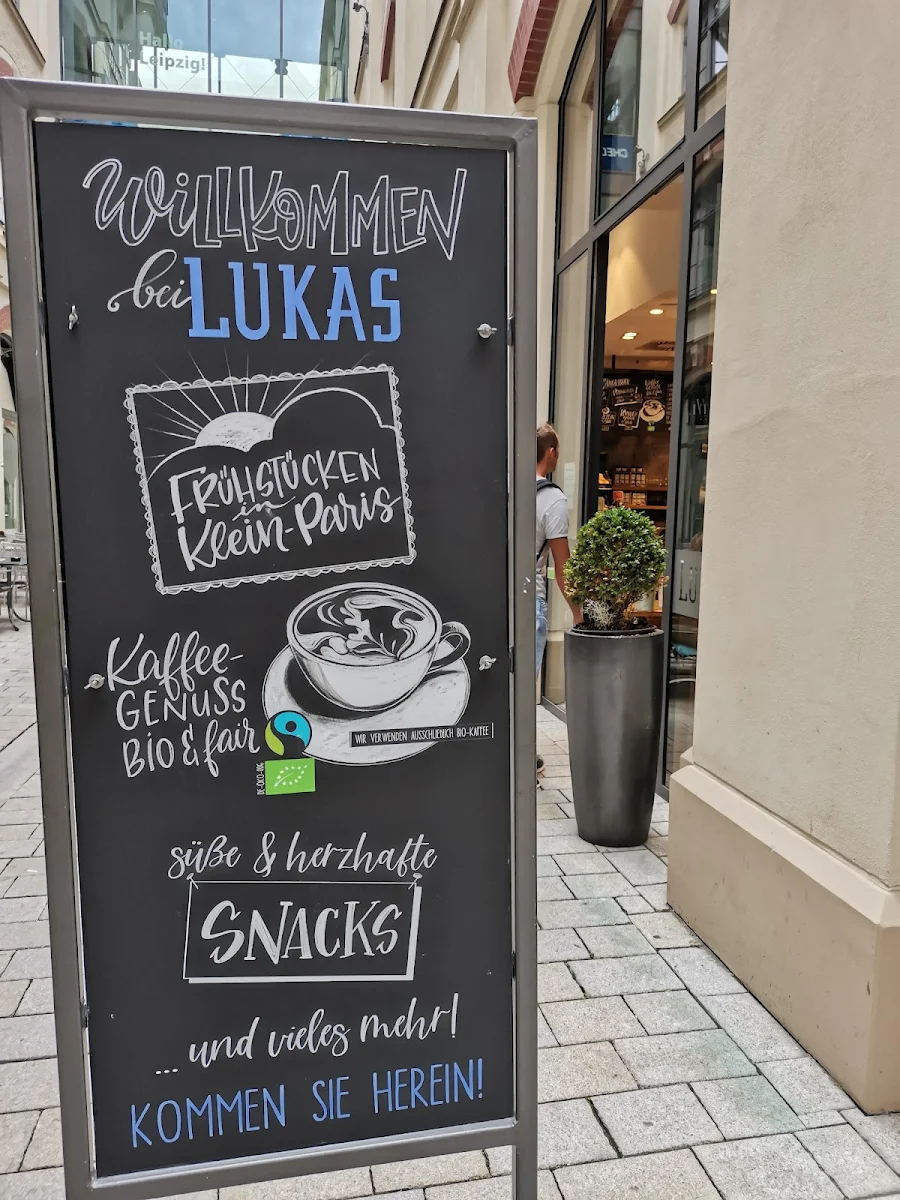 Hallo
Leipzig!
WiLLKOMMEN
bei LUKAS
FRÜHSTÜCKEN
in
Klein-Paris
Kaffee-
GENUSS
BiO & fair
WIR VERWENDEN AUSSCHLIEßLICH BIO-KAFFEE
süße & herzhafte
SNACKS
... und vieles mehr!
KOMMEN SIE HEREIN!
LU